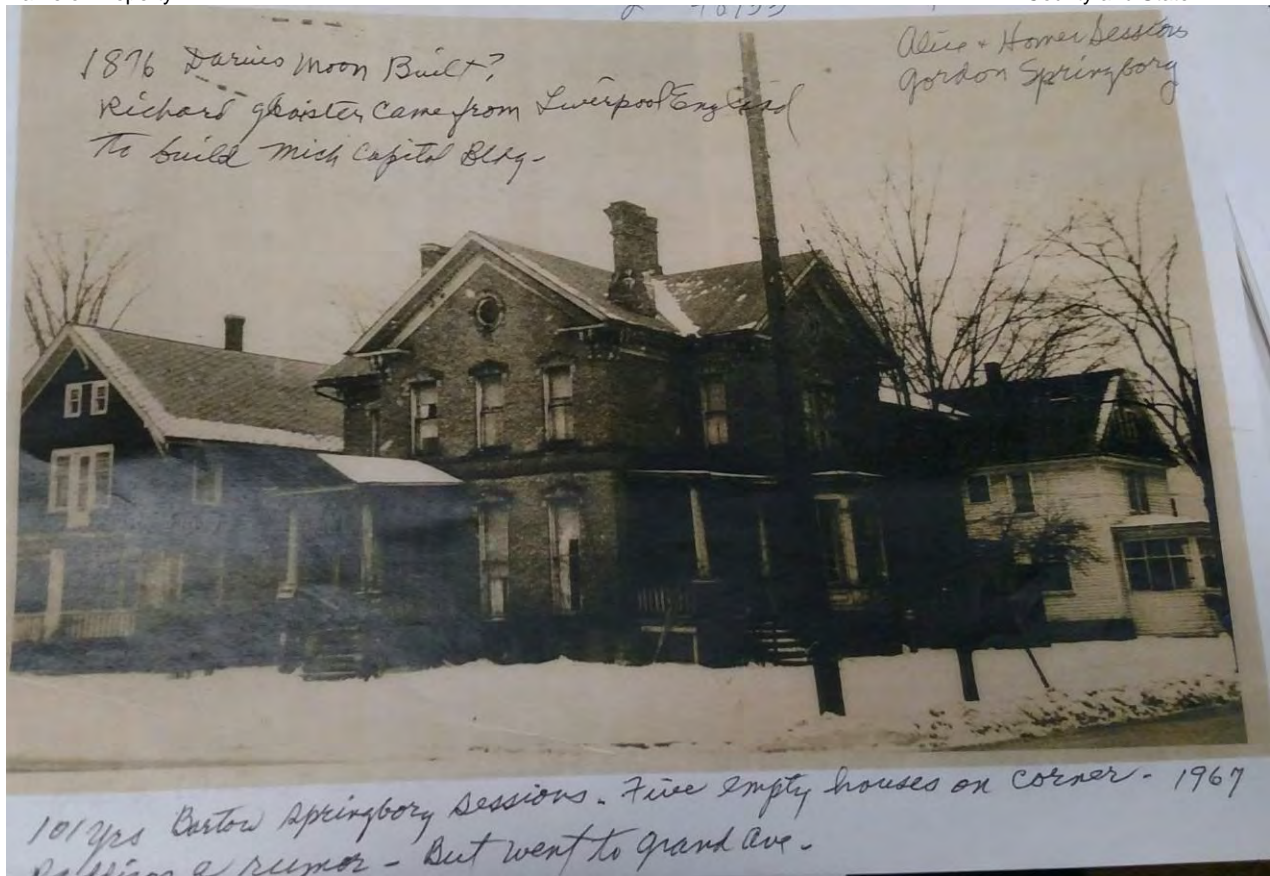 1876 Darius Moon Built?
Richard Glaister Came from Liverpool England
To build Mich Capitol Bldg-
Alice + Homer Sessions
Gordon Springborg
101 yrs Bartow Springborg Sessions. Five empty houses on corner - 1967
a rumor - But went to Grand Ave.